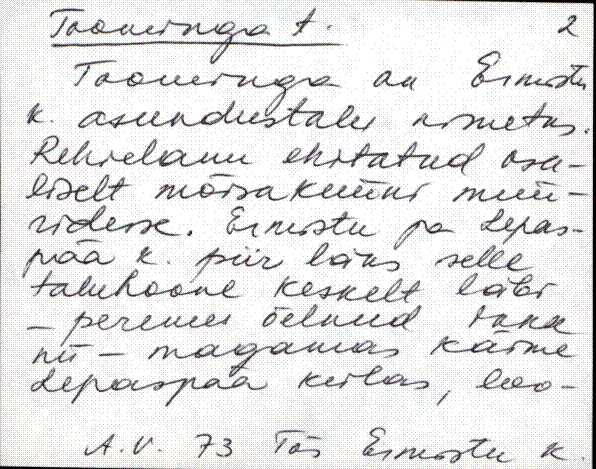 Toominga t. 2
Toominga on Ermistu
k. asundustalu nimetus.
Rehielamu ehitatud osa-
liselt mõisaküüni müü-
ridesse. Ermistu ja Lepas-
pää k. piir läks selle
taluhoone keskelt läbi
– peremees öelnud ikka
nii – magamas käime
Lepaspää külas, loo-
A.V. 73 Tõs Ermistu k.